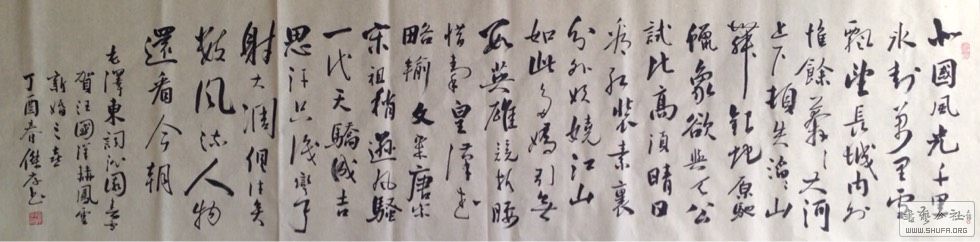 北國風光千里
冰封萬里雪
飄望長城內外
惟餘莽〻大河
上下頓失滔〻山
舞銀蛇原馳
蠟象欲與天公
試比高須晴日
看紅裝素裹
分外妖嬈江山
如此多嬌引無
數英雄競折腰
惜秦皇漢武
略輸文采唐宗
宋祖稍遜風騷
一代天驕成吉
思汗只識彎弓
射大雕俱往矣
數風流人物
還看今朝
毛澤東詞沁園春
賀汪國洋赫鳳雲
新婚之喜
丁酉春傑書
書藝公社
WWW.SHUFA.ORG